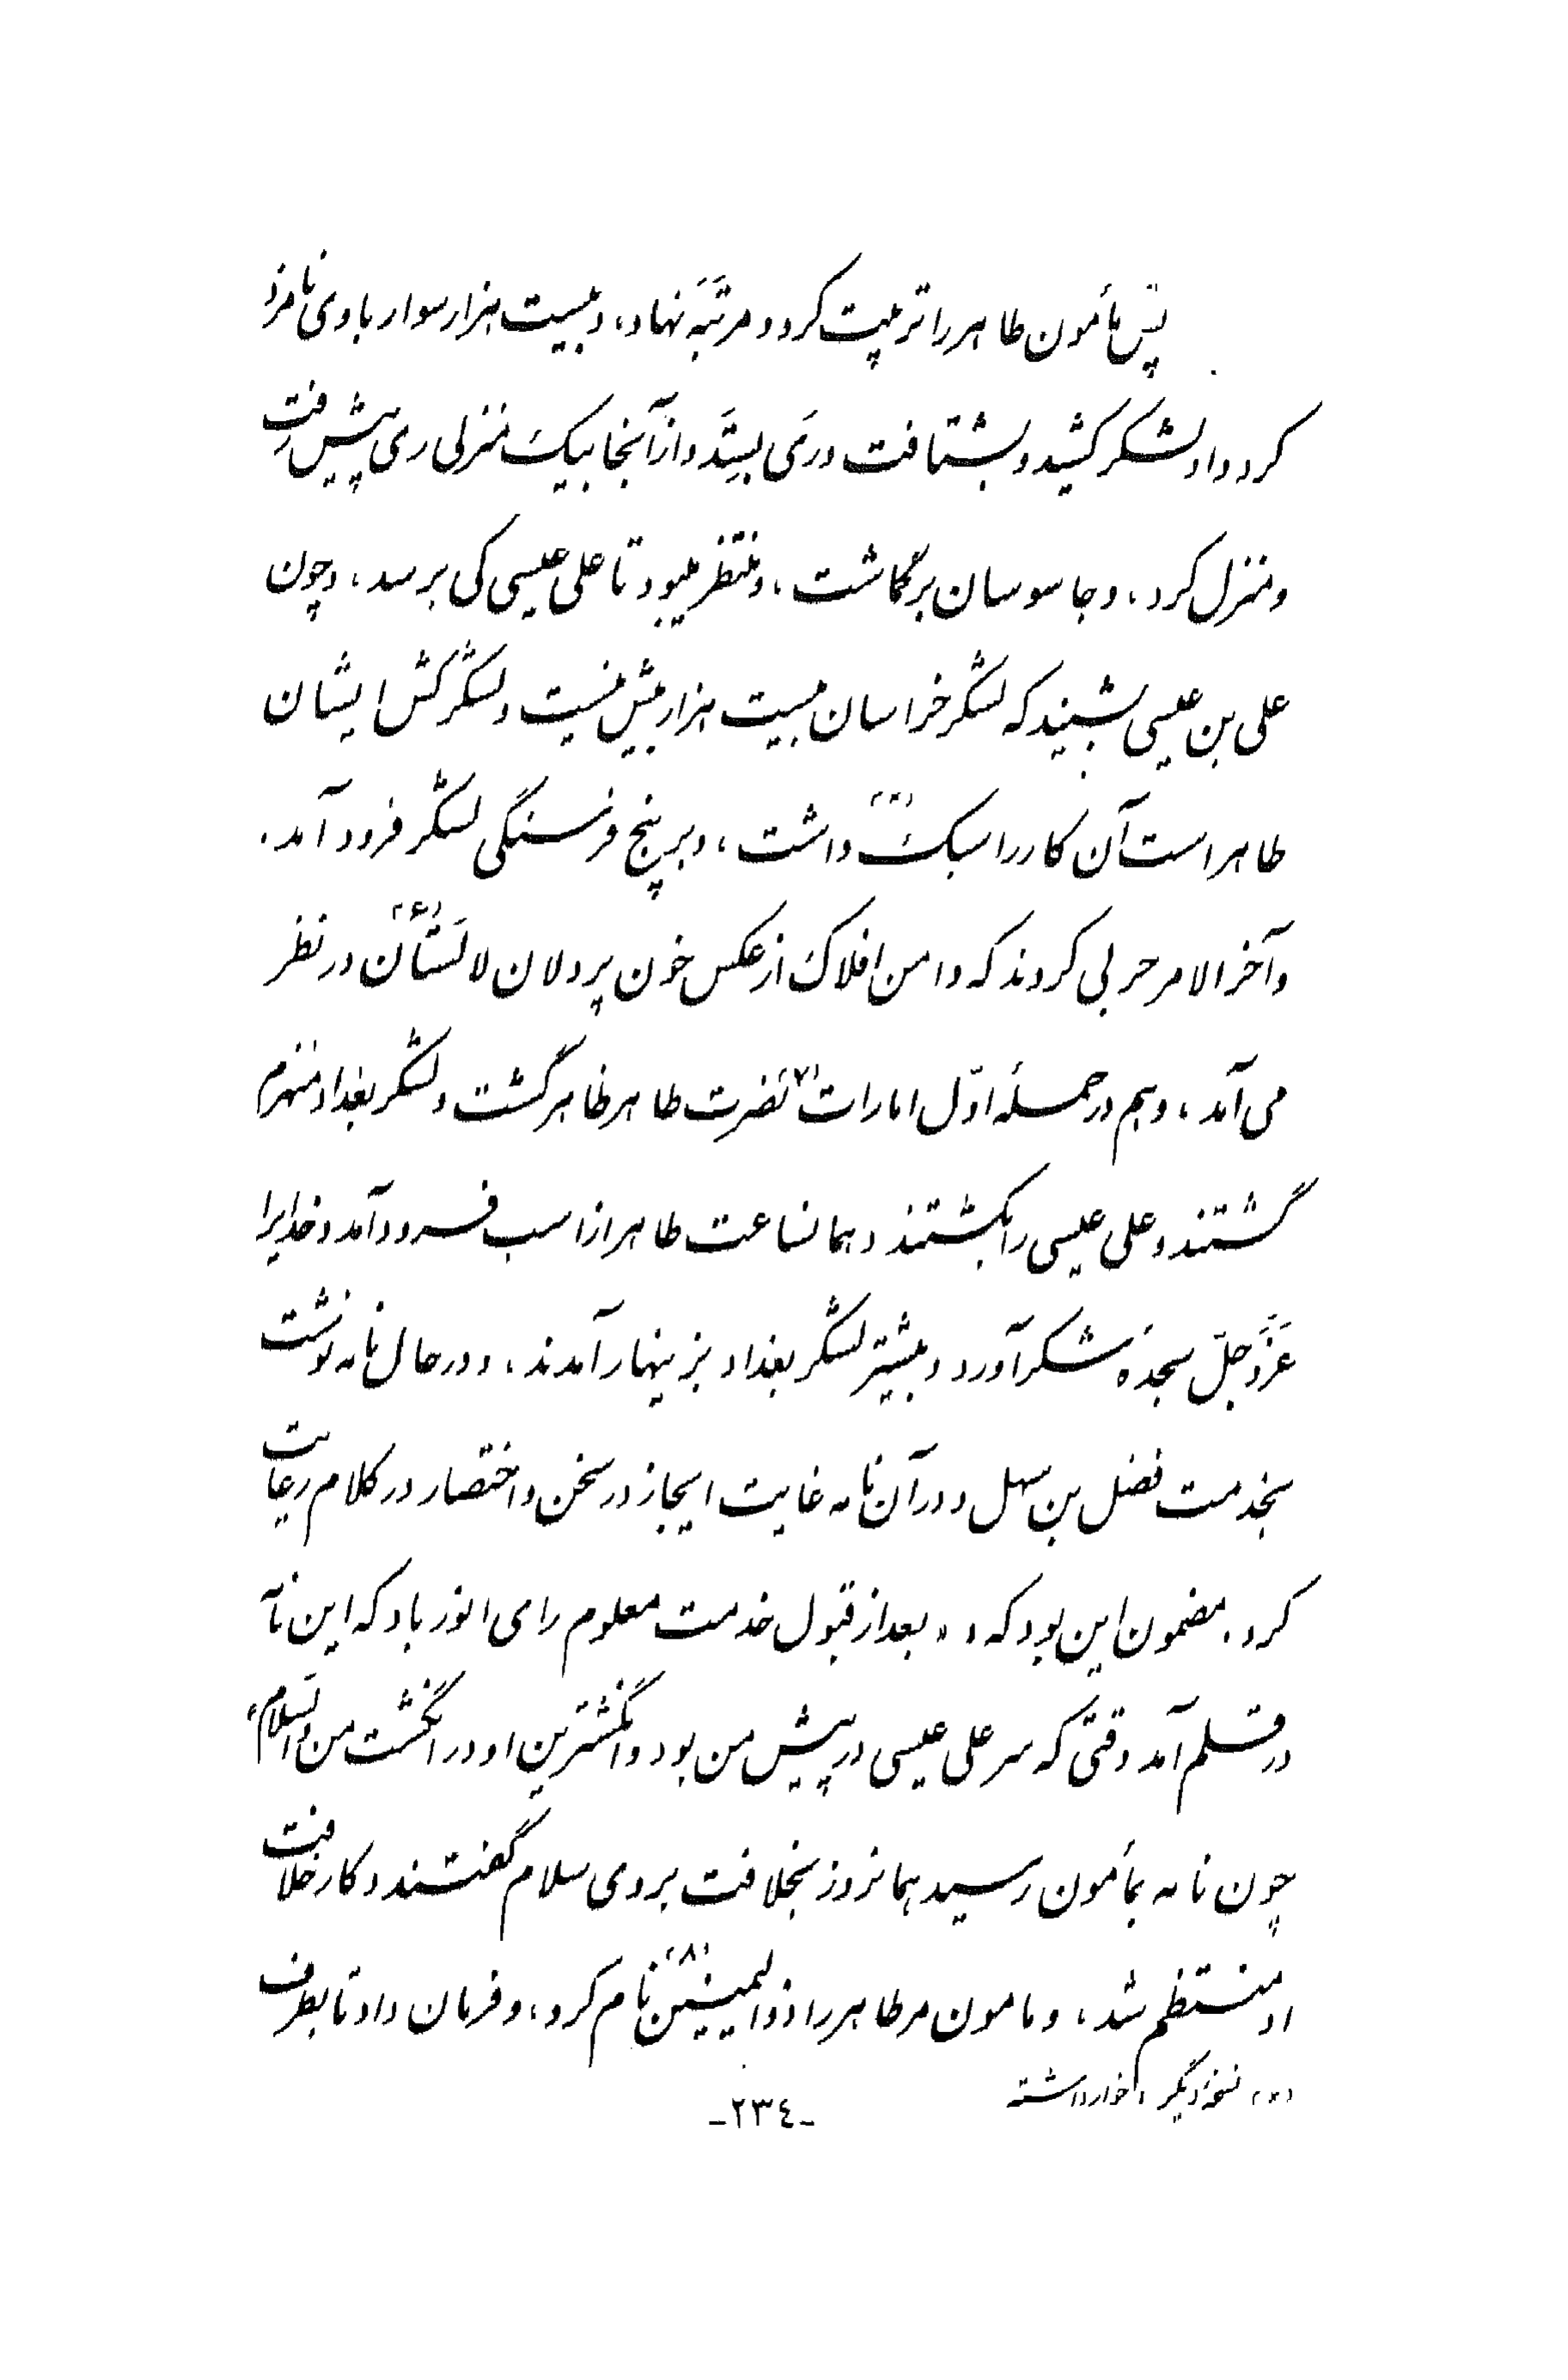 پس مأمون طاهر را تربیت کرد و مرتبَه نهاد، و بیست هزار سوار با وی نامزد
کرد و او لشکر کشید و بشتافت و ری بستد و از آنجا بیک منزلی ری پیش رفت
و منزل کرد، و جاسوسان برگماشت، و منتظر میبود تا علی عیسی کی برسد، و چون
علی بن عیسی بشنید که لشکر خراسان بیست هزار بیش نیست و لشکرکش ایشان
طاهر است آن کار را سبک داشت، و بر پنج فرسنگی لشکر فرود آمد.
و آخر الامر حربی کردند که دامن افلاک از عکس خون پردلان لالَستان (۶) در نظر
می آمد، و هم در حملهٔ اوّل امارات (۷) نصرت طاهر ظاهر گشت و لشکر بغداد منهزم
گشتند و علی عیسی را بکشتند و همانساعت طاهر از اسب فرود آمد و خدایرا
عَزَّ و جَلّ سجدهٔ شکر آورد و بیشتر لشکر بغداد بزینهار آمدند، و در حال نامه نوشت
بخدمت فضل بن سهل و در آن نامه غایت ایجاز در سخن و اختصار در کلام رعایت
کرد. مضمون این بود که «بعد از قبول خدمت معلوم رای انور باد که این نامه
در قلم آمد وقتی که سر علی عیسی در پیش من بود و انگشترین او در انگشت من والسلام»
چون نامه بمأمون رسید همانروز بخلافت بر وی سلام گفتند و کار خلافت
او منتظم شد، و مامون مر طاهر را ذوالیمینین (۸) نام کرد، و فرمان داد تا بطرف
نسخهٔ دیگر، خوار داشته
-٢٣٤-